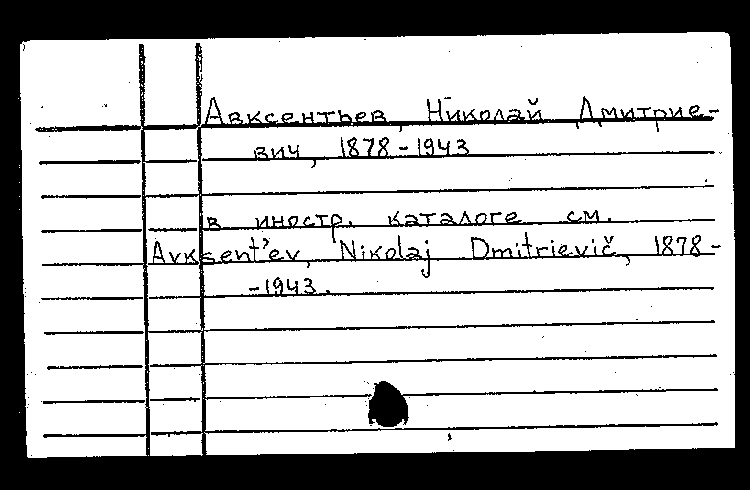 Авксентьев, Николай Дмитрие-
вич, 1878-1943
в иностр. каталоге см.
Avksent'ev, Nikolaj Dmitrievič, 1878-
-1943.